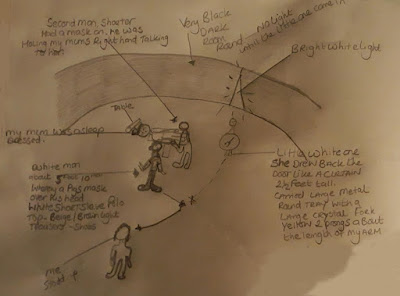 Second man Shorter
Had a mask on. He was
Holding my mums Right hand Talking
to her.
Very Black
DARK
ROOM
Round
NO Light
until the little one came in
BRight white light
Table
my mum was asleep
Dressed.
A white man
about 5 foot 10
wearing a Pigs mask
over his head
white short sleeve Polo
Top. Beige / Brain Light
Trousers - Shoes
me
Stood
Little white one
She DREW BACK the
DOOR like A CURTAIN
2½ Feet tall.
Carried Large metal
Round TRAY with a
Large crystal fork
Yellow 2 prongs about
the length of my ARM